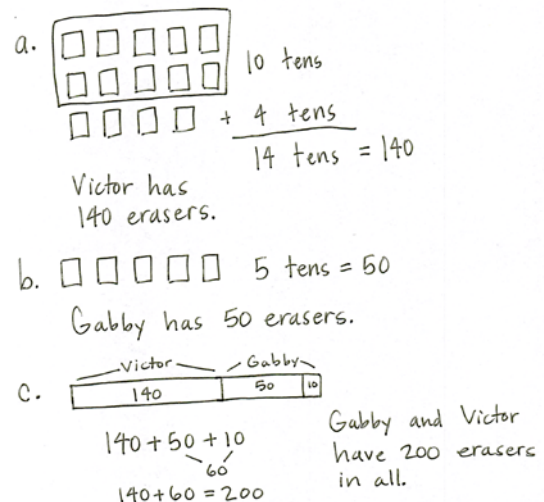 a.
10 tens
+ 4 tens
14 tens = 140
Victor has
140 erasers.
b. 5 tens = 50
Gabby has 50 erasers.
Victor Gabby
c. 140 50 10
140 + 50 + 10
60
140 + 60 = 200
Gabby and Victor
have 200 erasers
in all.